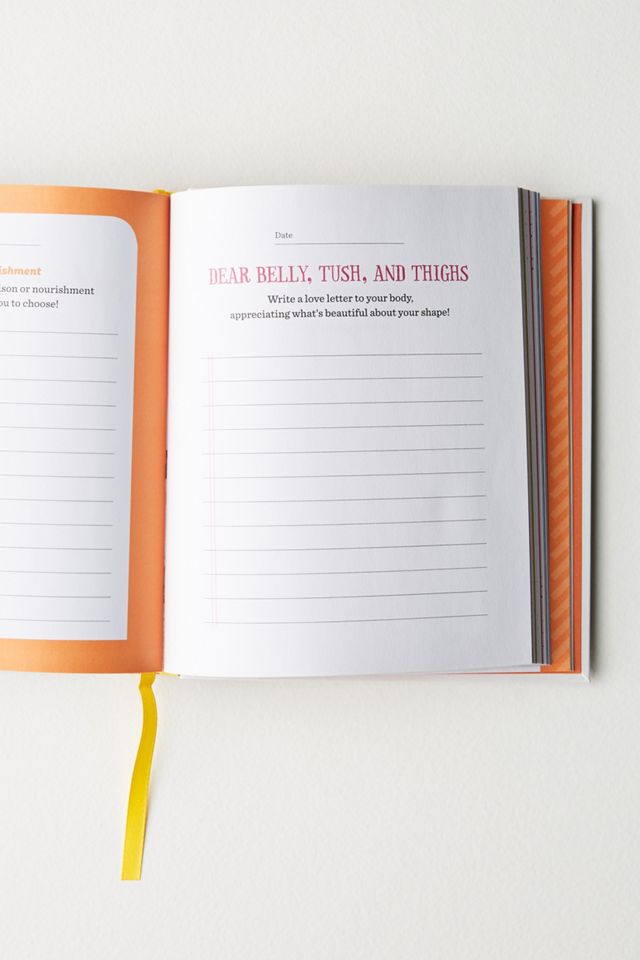 ishment
ison or nourishment
ou to choose!
Date
DEAR BELLY, TUSH, AND THIGHS
Write a love letter to your body,
appreciating what's beautiful about your shape!